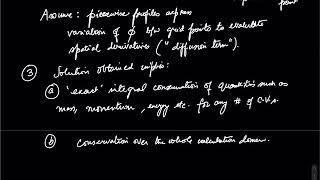 point
Assume: piecewise profiles express
variation of φ b/w grid points to evaluate
spatial derivatives ("diffusion term").
③ Solution obtained implies:
ⓐ "exact" integral conservation of quantities such as
mass, momentum, energy etc. for any # of C.V.s.
ⓑ conservation over the whole calculation domain.